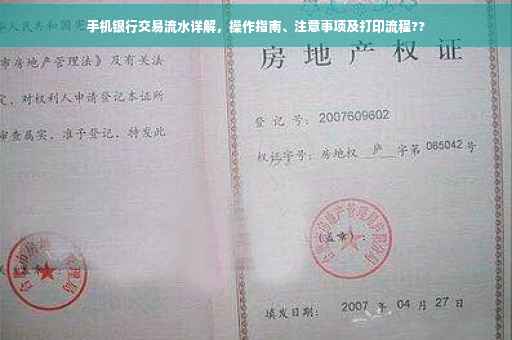 手机银行交易流水详解，操作指南、注意事项及打印流程??
华人民共和国宪
市房地产管理法》及有关法
定，对权利人申请登记本证所
审查属实，准予登记，特发此
房地产权证
登记号：2007609602
权证字号：房地权 庐 字第 085042 号
(盖章)：
填发日期：2007 年 04 月 27 日